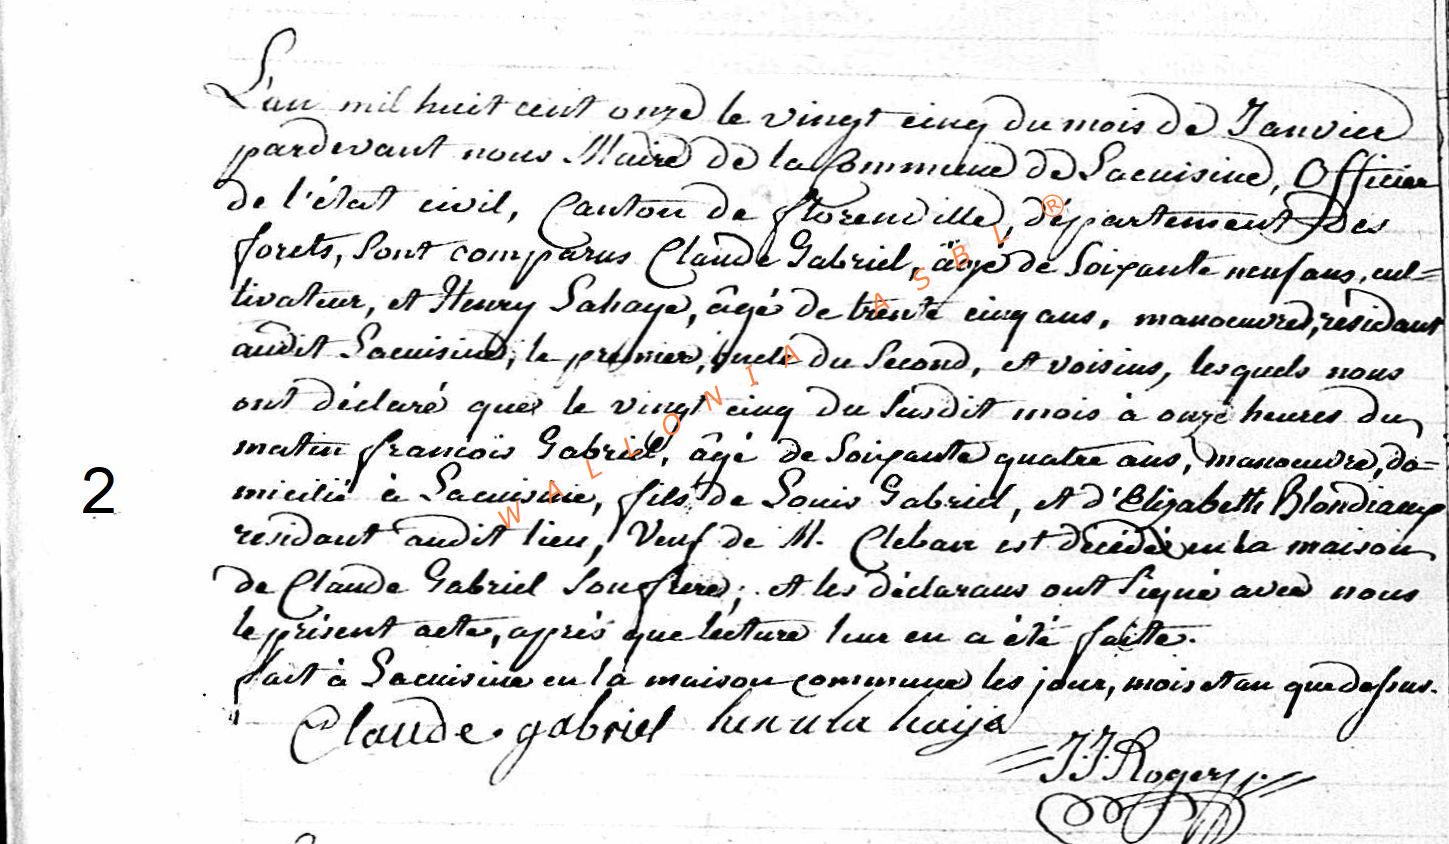 L'an mil huit cent onze le vingt cinq du mois de Janvier
pardevant nous Maire de la Commune de Lacuisine, Officier
de l'état civil, Canton de florenville, département des
forets, sont comparus Claude Gabriel, âgé de soixante neuf ans, cul=
tivateur, et Henry Lahaye, âgé de trente cinq ans, manoeuvre, résidant
audit Lacuisine, le premier, oncle du second, et voisins, lesquels nous
ont déclaré que le vingt cinq du susdit mois à onze heures du
matin françois Gabriel, âgé de soixante quatre ans, manoeuvre, do=
2
micilié à Lacuisine, fils de Louis Gabriel, et d'Elizabeth Blondiaux
residant audit lieu, Veuf de M. Cleban est décédé en la maison
de Claude Gabriel son frere; et les déclarans ont signé avec nous
le présent acte, après que lecture leur en a été faite.
fait à Lacuisine en la maison commune les jour, mois et an que dessus.
Claude gabriel henri la haije
J.J. Roger
WALLONIA ASBL ®